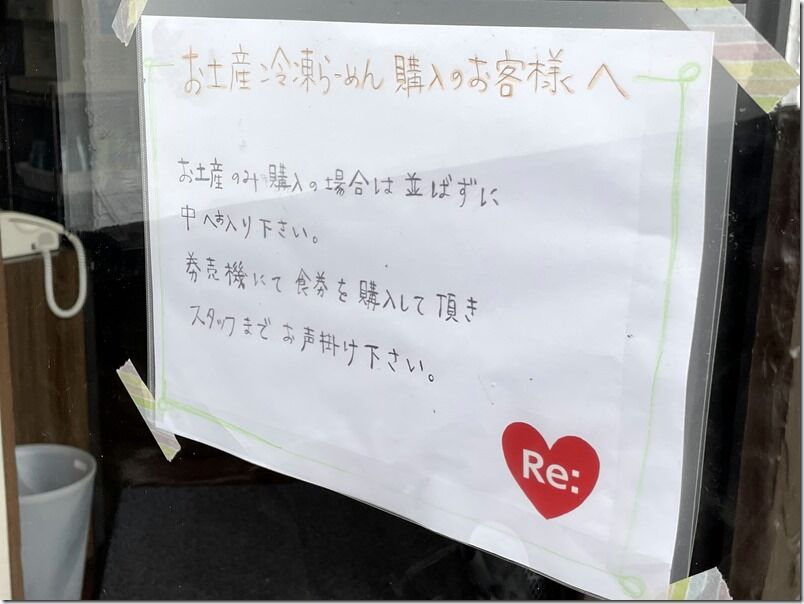 お土産冷凍らーめん購入のお客様へ
お土産のみ購入の場合は並ばずに
中へお入り下さい。
券売機にて食券を購入して頂き
スタッフまでお声掛け下さい。
Re: